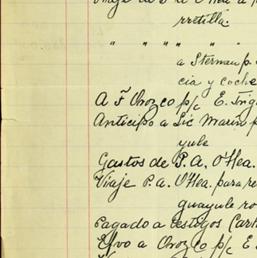 Viaje de P. A. O'Hea a
rretilla.
" " " " "
a Sterman p.
cia y coche
A F Orozco p/c E. Trig
Anticipo a Lic Marin p
yule
Gastos de P. A. O'Hea.
Viaje P. A. O'Hea. para re
guayule ro
Pagado a testigos (Carh
Efvo a Orozco p/c E.